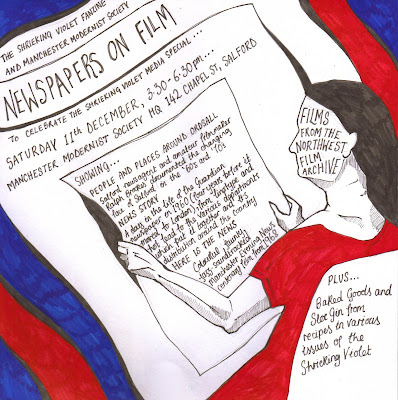 THE SHRIEKING VIOLET FANZINE
AND MANCHESTER MODERNIST SOCIETY
NEWSPAPERS ON FILM
TO CELEBRATE THE SHRIEKING VIOLET MEDIA SPECIAL...
SATURDAY 11th DECEMBER, 3.30-6.30pm...
MANCHESTER MODERNIST SOCIETY HQ 142 CHAPEL ST, SALFORD
SHOWING...
PEOPLE AND PLACES AROUND ORDSALL
Salford newsagent and amateur filmmaker
Ralph Brookes documented the changing
face of Salford in the '60s and '70s
NEWS STORY
A day in the life of the Guardian
newspaper in 1960 (four years before it
moved to London), from
to the various departments
which put it together and its
distribution around the country
HERE IS THE NEWS
Colourful, funky,
jazz soundtracked
Manchester Evening News
centenary film from 1968
FILMS
FROM THE
NORTHWEST
FILM
ARCHIVE
PLUS...
Baked Goods and
Sloe Gin from
recipes in various
issues of the
Shrieking Violet